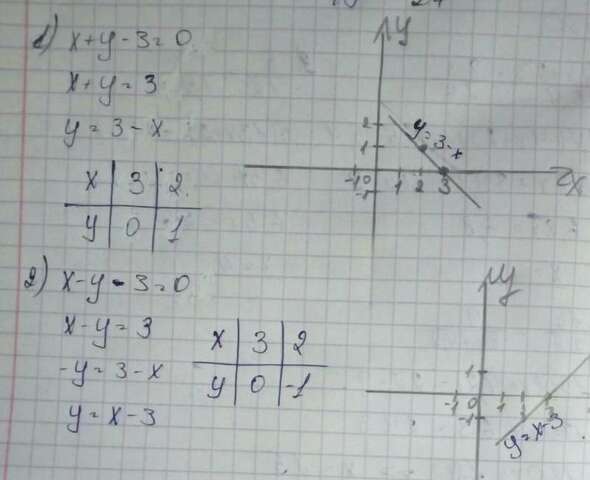 1) x+y-3=0
x+y=3
y=3-x
x 3 2
y 0 1
y
2
1
y=3-x
-1 0 1 2 3 x
-1
2) x-y-3=0
x-y=3
-y=3-x
y=x-3
x 3 2
y 0 -1
y
1
-1 0 1
-1
y=x-3